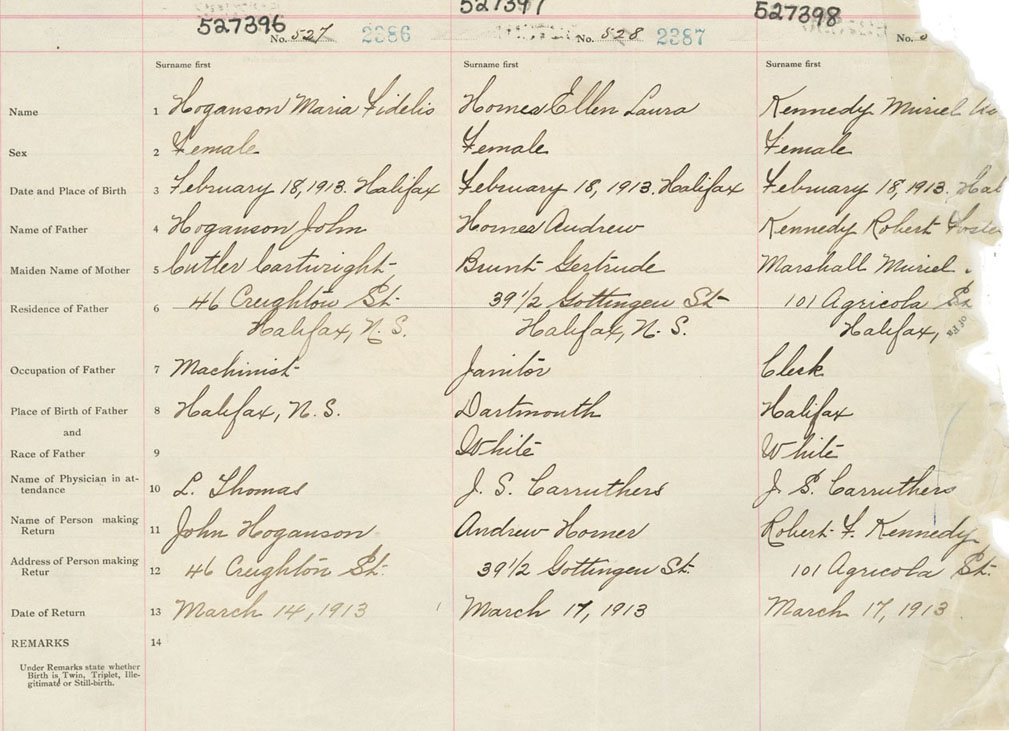 527396 527397 527398
No. 527 2386 No. 528 2387 No.
Surname first Surname first Surname first
Name 1 Hoganson Maria Fidelis Homes Ellen Laura Kennedy Muriel
Sex 2 Female Female Female
Date and Place of Birth 3 February 18, 1913. Halifax February 18, 1913. Halifax February 18, 1913. Hal
Name of Father 4 Hoganson John Homes Andrew Kennedy Robert Foste
Maiden Name of Mother 5 Cutler Cartwright Brunt Gertrude Marshall Muriel
Residence of Father 6 46 Creighton St. 39 1/2 Gottingen St 101 Agricola St.
Halifax, N.S. Halifax, N.S. Halifax,
Occupation of Father 7 Machinist Janitor Clerk
Place of Birth of Father 8 Halifax, N.S. Dartmouth Halifax
and
Race of Father 9 White White
Name of Physician in at-
tendance 10 L. Thomas J. S. Carruthers J. S. Carruthers
Name of Person making
Return 11 John Hoganson Andrew Homer Robert F. Kennedy
Address of Person making
Retur 12 46 Creighton St. 39 1/2 Gottingen St. 101 Agricola St.
Date of Return 13 March 14, 1913 March 17, 1913 March 17, 1913
REMARKS 14
Under Remarks state whether
Birth is Twin, Triplet, Ille-
gitimate or Still-birth.